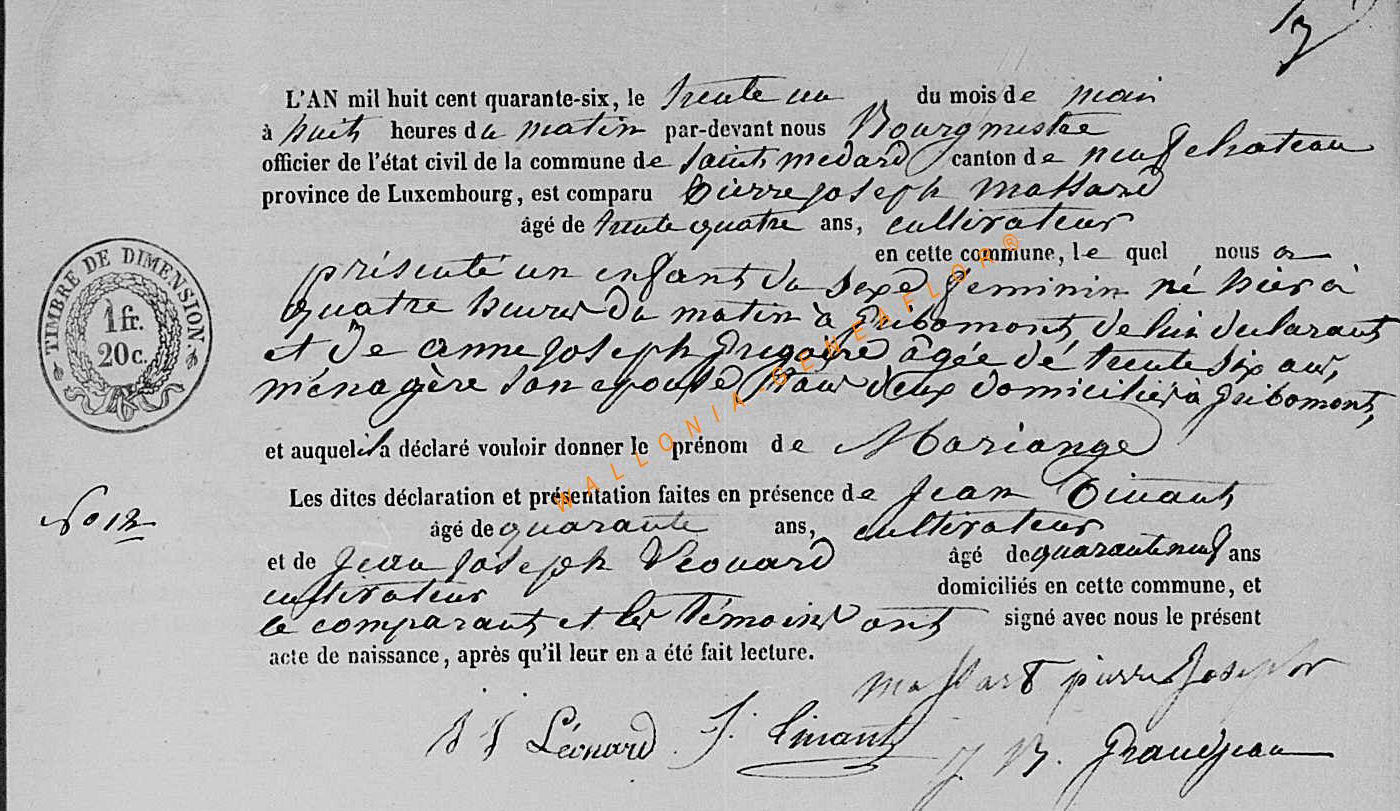 L'AN mil huit cent quarante-six, le trente un du mois de mai
à huit heures du matin par-devant nous Bourgmestre
officier de l'état civil de la commune de Saint medard canton de neufchateau
province de Luxembourg, est comparu Pierre joseph Massard
âgé de trente quatre ans, cultivateur
en cette commune, le quel nous a
présenté un enfant du sexe féminin né hier à
quatre heures du matin à Gribomont, de lui declarant
et de anne joseph Gregoire âgée de trente six ans,
ménagère son epouse tous deux domiciliés à Gribomont,
et auquel il a déclaré vouloir donner le prénom de Mariange
Les dites déclaration et présentation faites en présence de Jean Tinant
âgé de quarante ans, cultivateur
et de Jean joseph Léonard âgé de quarante neuf ans
cultivateur domiciliés en cette commune, et
le comparant et les témoins ont signé avec nous le présent
acte de naissance, après qu'il leur en a été fait lecture.
massart pierre Joseph
J J Léonard J. Tinant J. B. Grandjean
TIMBRE DE DIMENSION
1 fr.
20 c.
No 12
WALLONIA-GENEAFLOR®